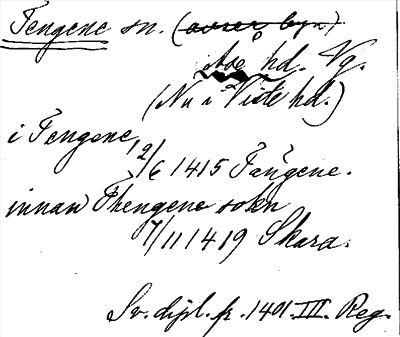 Tengene sn. (avser byn)
Åse hd. Vg.
(Nu i Viste hd.)
i Tengene, 12/6 1415 Fängene.
innan Thengene sokn
7/11 1419 Skara.
Sv. dipl. fr. 1401 III. Reg.